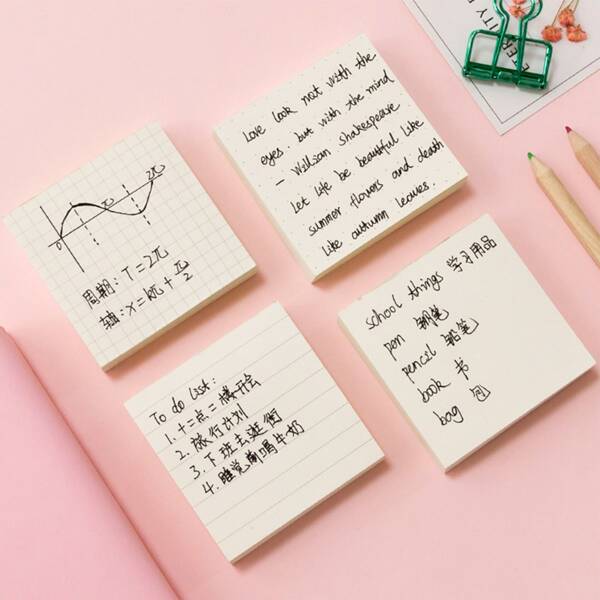 0 π 2π
周期: T=2π
轴: x=kπ+π/2
Love look not with the
eyes. but with the mind
- William Shakespeare
Let life be beautiful like
summer flowers and death
like autumn leaves.
To do list:
1. 十二点二楼开会
2. 旅行计划
3. 下班去逛街
4. 睡觉前喝牛奶
school things 学习用品
pen 钢笔
pencil 铅笔
book 书
bag 包